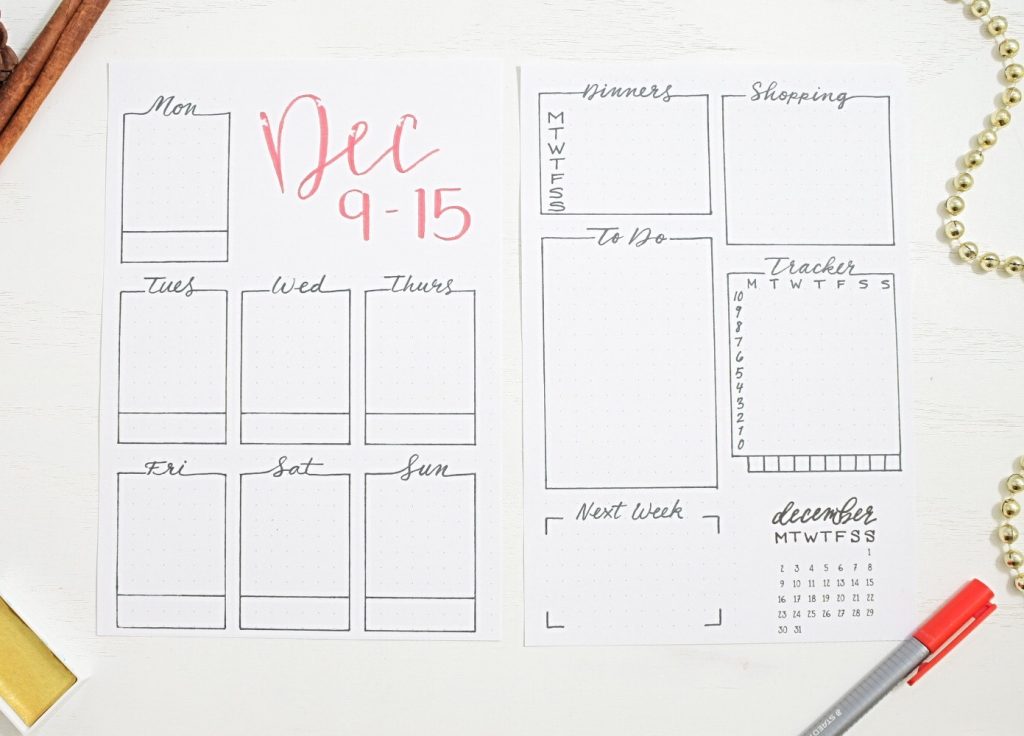 Mon
Dec
9-15
Tues Wed Thurs
Fri Sat Sun
Dinners
M
T
W
T
F
S
S
Shopping
To Do
Tracker
M T W T F S S
10
9
8
7
6
5
4
3
2
1
0
Next Week
december
MTWTFSS
1
2 3 4 5 6 7 8
9 10 11 12 13 14 15
16 17 18 19 20 21 22
23 24 25 26 27 28 29
30 31
STAED